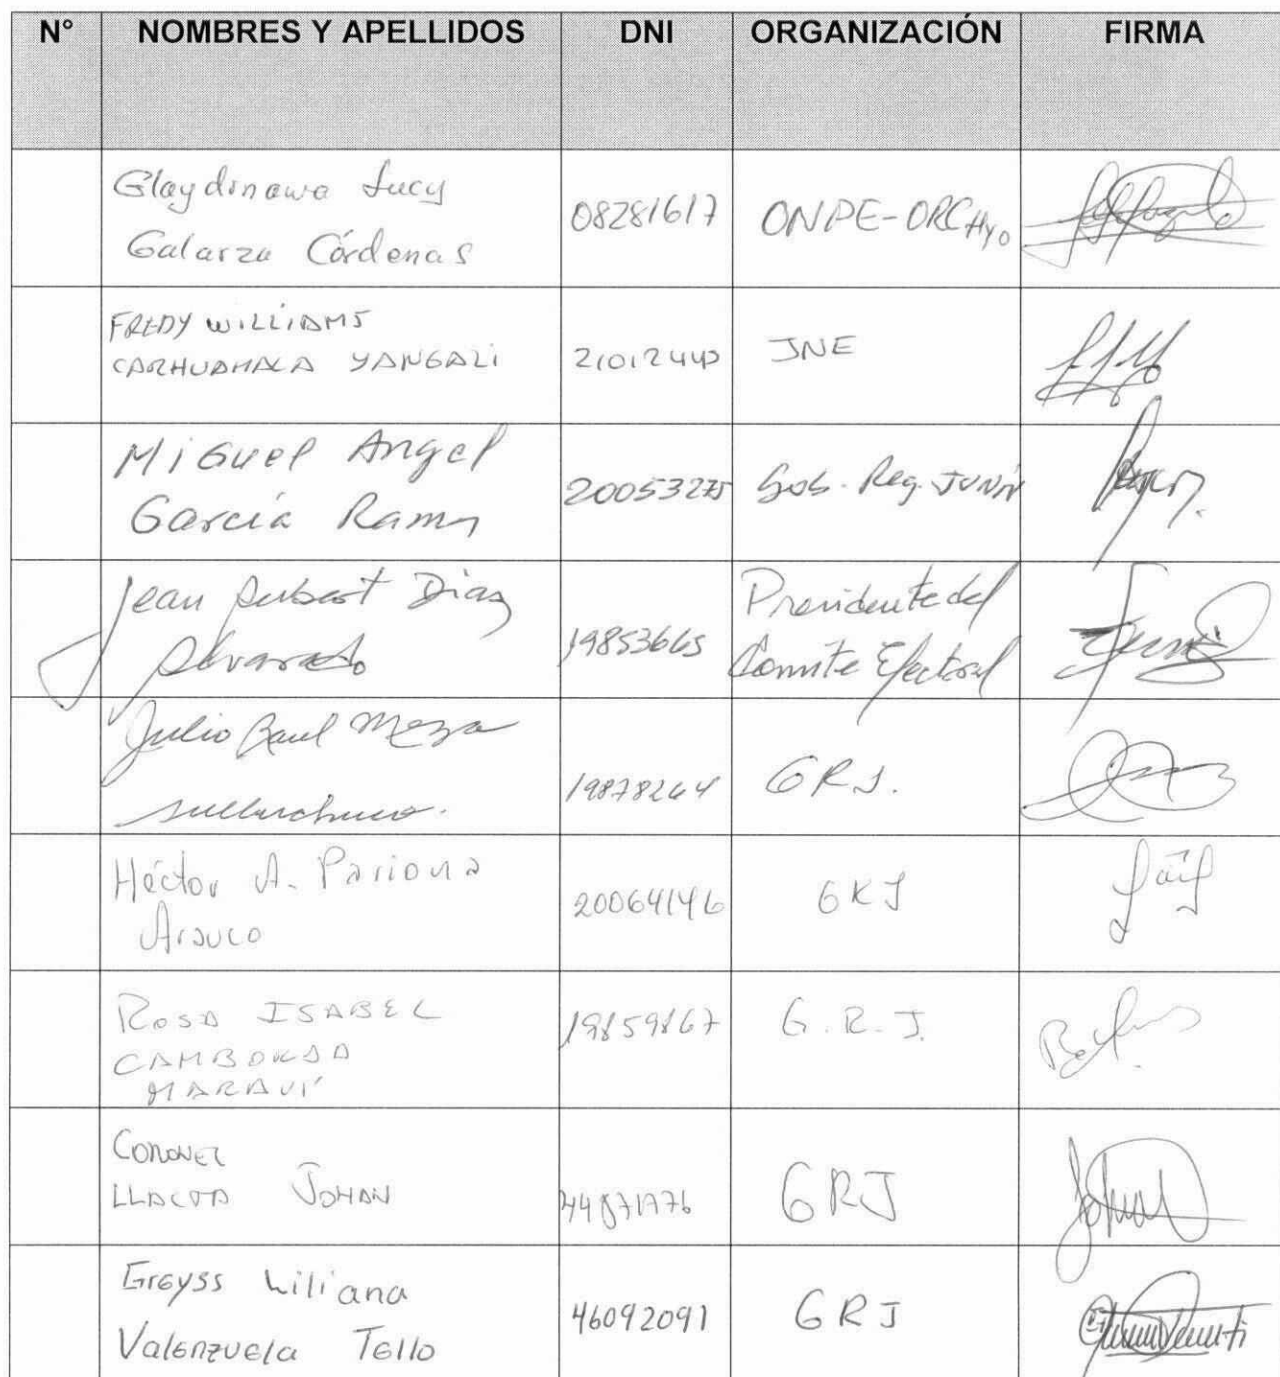 N° NOMBRES Y APELLIDOS DNI ORGANIZACIÓN FIRMA
Glaydinawa Lucy
Galarza Córdenas 08281617 ONPE-ORCHyo
FREDY WILLIAMS
CARHUAMACA YANGALI 21012440 JNE
Miguel Angel
García Ramos 20053275 Gob. Reg. JUNIN
Jean Hubert Diaz
Alvarado 19853665 Presidente del
Comite Electoral
Julio Raul Meza
19878264 GRJ.
Héctor A. Pariona
Arauco 20064146 GRJ
ROSA ISABEL
CAMBORDA
MARAVÍ 19859867 G.R.J.
CORONEL
LLACTA JOHAN GRJ
Greyss Liliana
Valenzuela Tello 46092091 GRJ